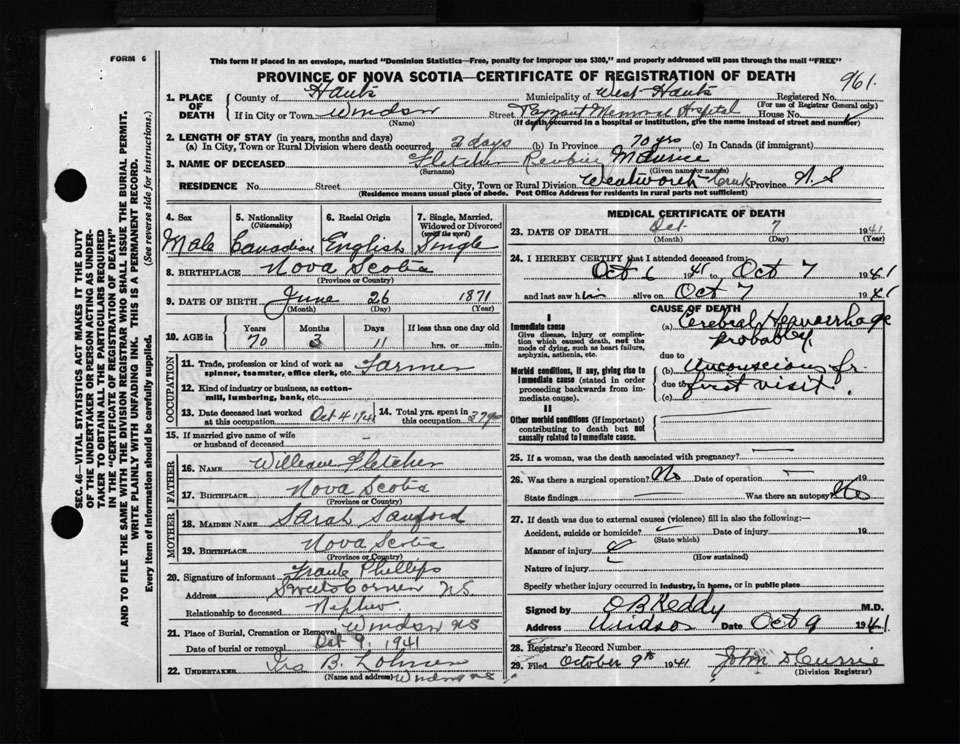 FORM 6
This form if placed in an envelope, marked "Dominion Statistics—Free, penalty for improper use $300," and properly addressed will pass through the mail "FREE"
PROVINCE OF NOVA SCOTIA—CERTIFICATE OF REGISTRATION OF DEATH
961.
1. PLACE OF DEATH
County of Hants Municipality of West Hants Registered No.
(For use of Registrar General only)
If in City or Town Windsor Street Payzant Memorial Hospital House No.
(Name) (If death occurred in a hospital or institution, give the name instead of street and number)
2. LENGTH OF STAY (in years, months and days)
(a) In City, Town or Rural Division where death occurred 2 days (b) In Province 70 yrs (c) In Canada (if immigrant)
3. NAME OF DECEASED Fletcher Maurice
(Surname) (Given name or names)
RESIDENCE No. Street City, Town or Rural Division Wentworth Creek Province N.S
(Residence means usual place of abode. Post Office Address for residents in rural parts not sufficient)
4. Sex Male
5. Nationality (Citizenship) Canadian
6. Racial Origin English
7. Single, Married, Widowed or Divorced (write the word) Single
8. BIRTHPLACE Nova Scotia
(Province or Country)
9. DATE OF BIRTH June 26 1871
(Month) (Day) (Year)
10. AGE in Years Months Days If less than one day old
70 3 11 hrs. or min.
OCCUPATION
11. Trade, profession or kind of work as spinner, teamster, office clerk, etc. Farmer
12. Kind of industry or business, as cotton-mill, lumbering, bank, etc.
13. Date deceased last worked at this occupation Oct 4 1941
14. Total yrs. spent in this occupation
15. If married give name of wife or husband of deceased —
FATHER
16. NAME William Fletcher
17. BIRTHPLACE Nova Scotia
(Province or Country)
MOTHER
18. MAIDEN NAME Sarah Sanford
19. BIRTHPLACE Nova Scotia
(Province or Country)
20. Signature of informant Frank Phillips
Address Sweets Corner N.S.
Relationship to deceased Nephew
21. Place of Burial, Cremation or Removal Windsor NS
Date of burial or removal Oct 9, 1941
22. UNDERTAKER B.
(Name and address) Windsor N.S.
MEDICAL CERTIFICATE OF DEATH
23. DATE OF DEATH Oct 7 1941
(Month) (Day) (Year)
24. I HEREBY CERTIFY that I attended deceased from:
Oct 6 1941 to Oct 7 1941
and last saw him alive on Oct 7 1941
CAUSE OF DEATH
I
Immediate cause
Give disease, injury or complication which caused death, not the mode of dying, such as heart failure, asphyxia, asthenia, etc.
(a) Cerebral Hemorrhage probably
due to
Morbid conditions, if any, giving rise to immediate cause (stated in order proceeding backwards from immediate).
(b) Unconscious fr
due to first visit.
(c)
II
Other morbid conditions (if important) contributing to death but not causally related to immediate cause.
25. If a woman, was the death associated with pregnancy? —
26. Was there a surgical operation? No Date of operation — 19
State findings — Was there an autopsy? No
27. If death was due to external causes (violence) fill in also the following:—
Accident, suicide or homicide? Date of injury 19
(State which)
Manner of injury
(How sustained)
Nature of injury
Specify whether injury occurred in industry, in home, or in public place
Signed by O B Keddy M.D.
Address Windsor Date Oct 9 1941
28. Registrar's Record Number
29. Filed October 9th 1941 John D Currie
(Division Registrar)
SEC. 46—VITAL STATISTICS ACT MAKES IT THE DUTY
OF THE UNDERTAKER OR PERSON ACTING AS UNDER-
TAKER TO OBTAIN ALL THE PARTICULARS REQUIRED
IN THE "CERTIFICATE OF REGISTRATION OF DEATH"
AND TO FILE THE SAME WITH THE DIVISION REGISTRAR WHO SHALL ISSUE THE BURIAL PERMIT.
WRITE PLAINLY WITH UNFADING INK. THIS IS A PERMANENT RECORD.
Every item of information should be carefully supplied. (See reverse side for instructions.)